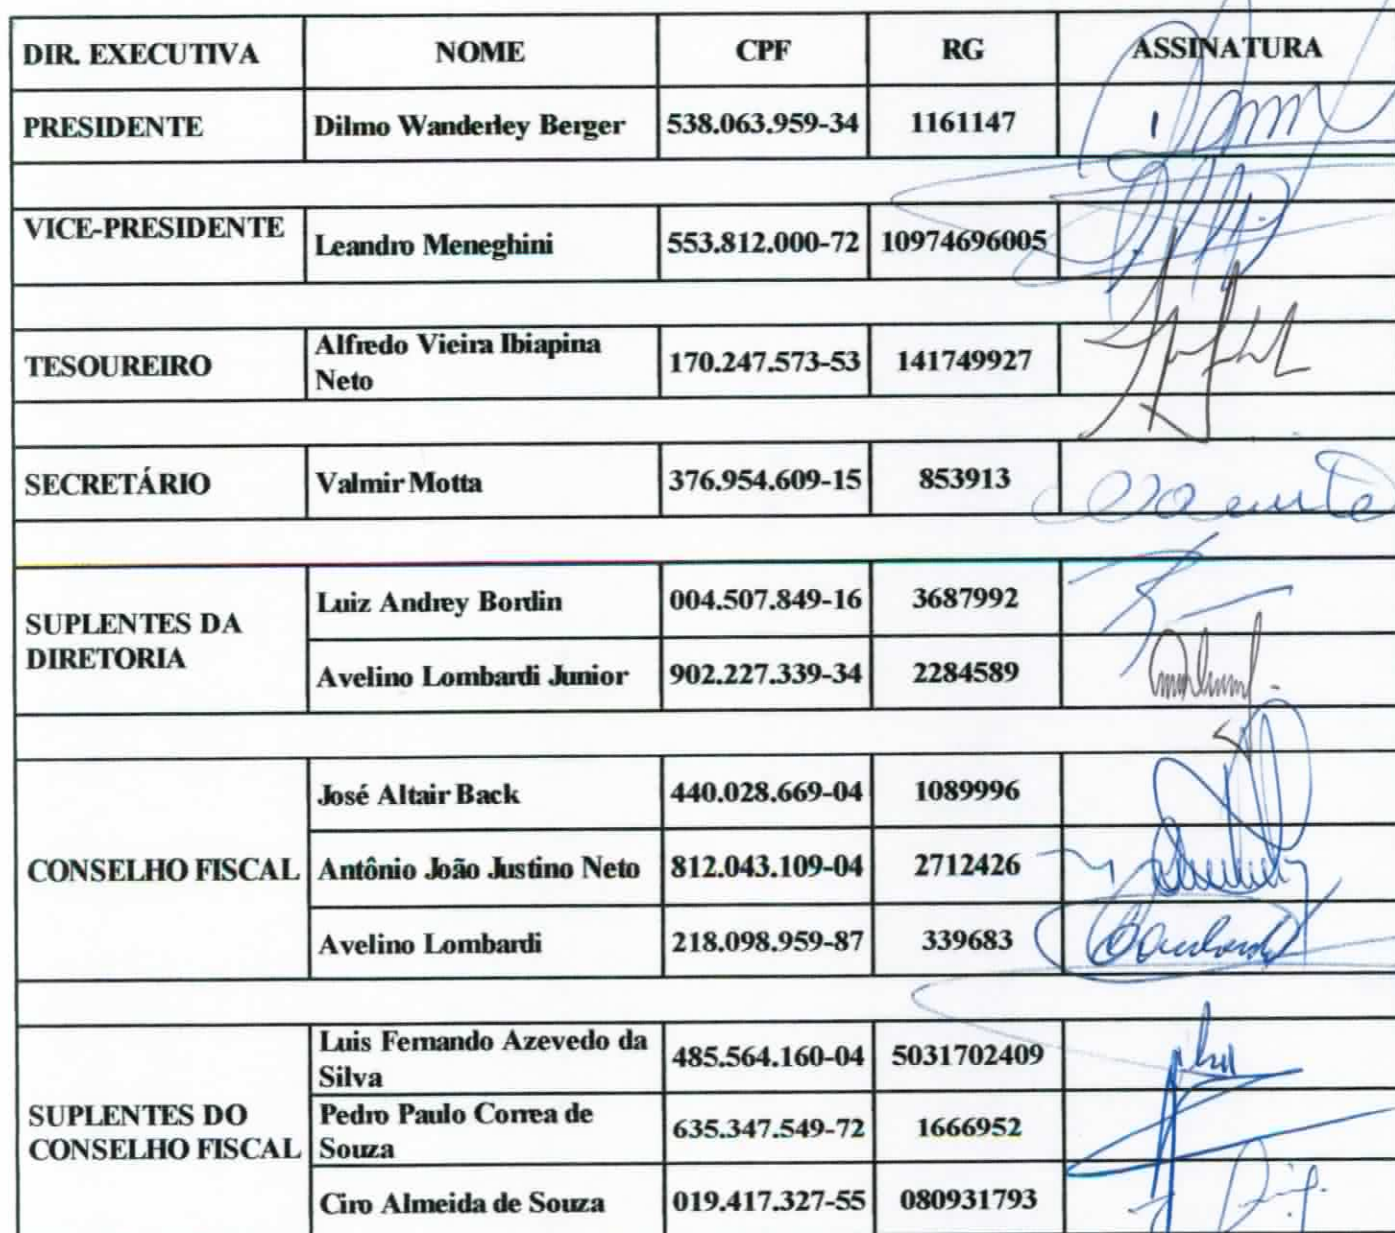 DIR. EXECUTIVA NOME CPF RG ASSINATURA
PRESIDENTE Dilmo Wanderley Berger 538.063.959-34 1161147
VICE-PRESIDENTE Leandro Meneghini 553.812.000-72 10974696005
TESOUREIRO Alfredo Vieira Ibiapina
Neto 170.247.573-53 141749927
SECRETÁRIO Valmir Motta 376.954.609-15 853913
SUPLENTES DA
DIRETORIA
Luiz Andrey Bordin 004.507.849-16 3687992
Avelino Lombardi Junior 902.227.339-34 2284589
CONSELHO FISCAL
José Altair Back 440.028.669-04 1089996
Antônio João Justino Neto 812.043.109-04 2712426
Avelino Lombardi 218.098.959-87 339683
SUPLENTES DO
CONSELHO FISCAL
Luis Fernando Azevedo da
Silva 485.564.160-04 5031702409
Pedro Paulo Correa de
Souza 635.347.549-72 1666952
Ciro Almeida de Souza 019.417.327-55 080931793